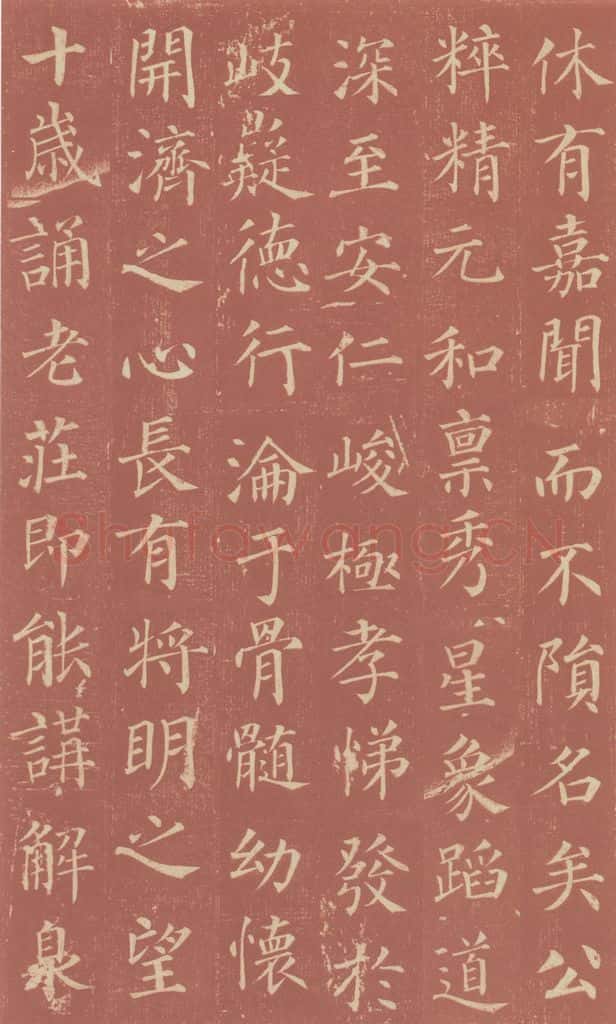 休有嘉聞而不隕名矣公
粹精元和禀秀星象蹈道
深至安仁峻極孝悌發於
岐嶷德行淪于骨髓幼懷
開濟之心長有將明之望
十歲誦老莊即能講解泉
Shufawang.CN